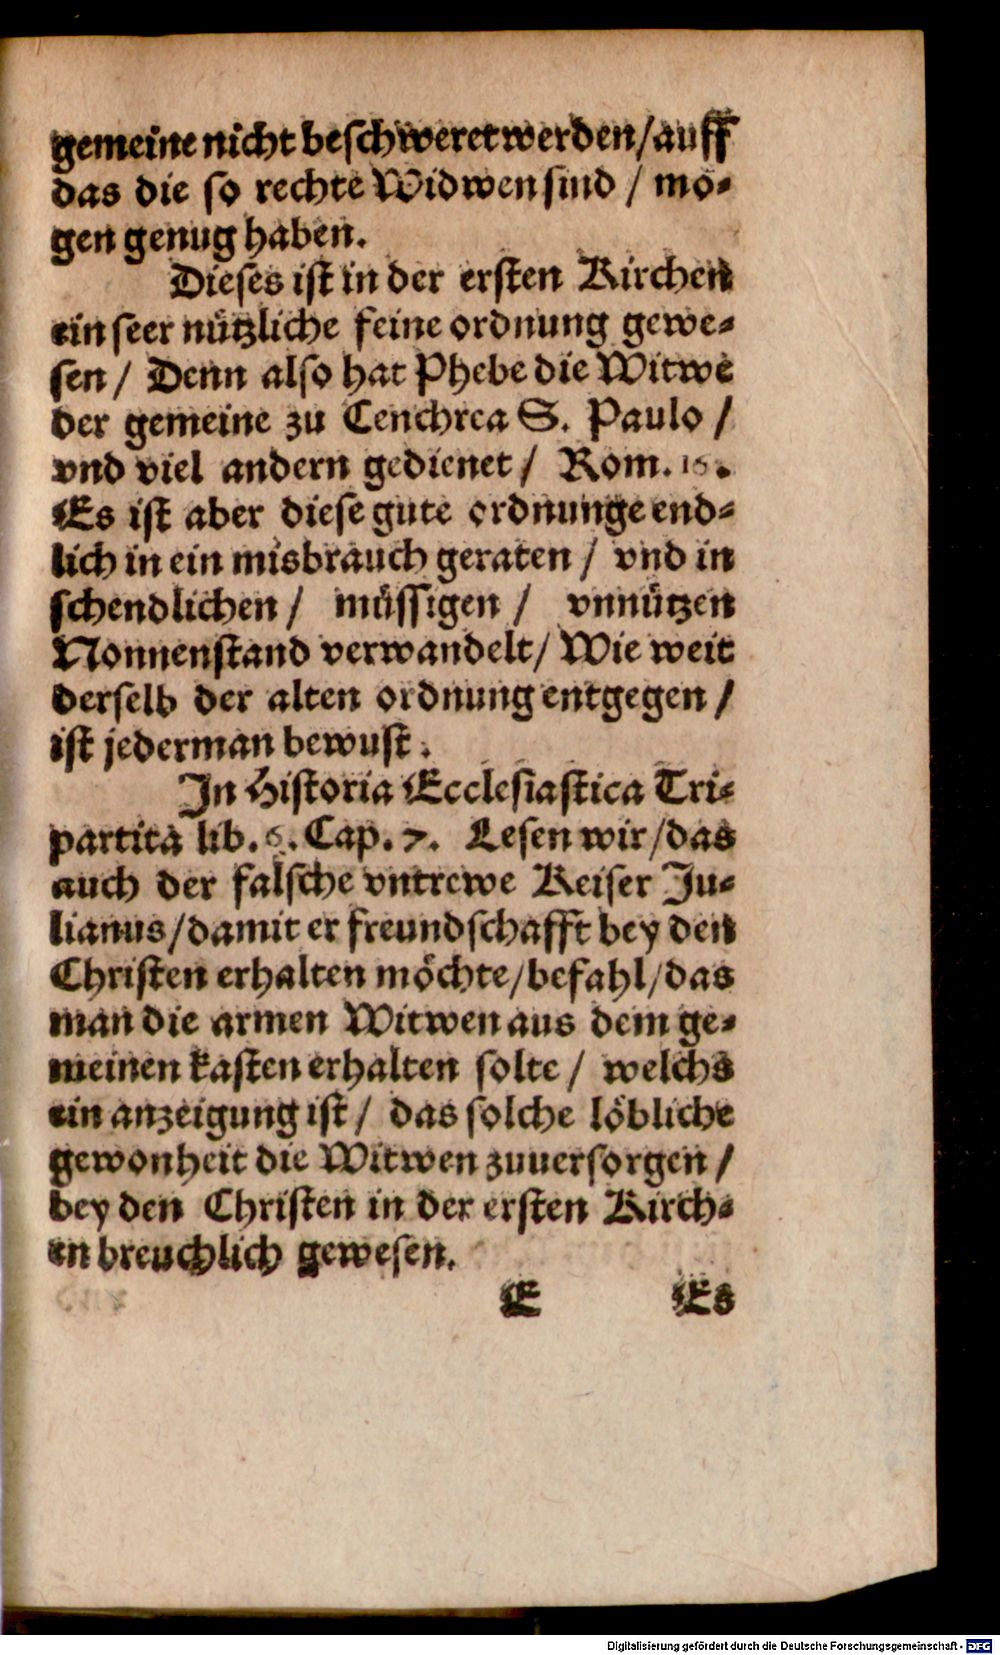 gemeine nicht beschweret werden/auff
das die so rechte Widwen sind / mö⸗
gen genug haben.
Dieses ist in der ersten Kirchen
ein seer nützliche feine ordnung gewe⸗
sen / Denn also hat Phebe die Witwe
der gemeine zu Cenchrea S. Paulo /
vnd viel andern gedienet / Rom. 16.
Es ist aber diese gute ordnunge end⸗
lich in ein misbrauch geraten / vnd in
schendlichen / müssigen / vnnützen
Nonnenstand verwandelt/ Wie weit
derselb der alten ordnung entgegen /
ist jederman bewust.
In Historia Ecclesiastica Tri⸗
partita lib. 6. Cap. 7. Lesen wir/das
auch der falsche vntrewe Keiser Ju⸗
lianus/damit er freundschafft bey den
Christen erhalten möchte/befahl/das
man die armen Witwen aus dem ge⸗
meinen kasten erhalten solte / welchs
ein anzeigung ist / das solche löbliche
gewonheit die Witwen zuuersorgen /
bey den Christen in der ersten Kirch⸗
en breuchlich gewesen.
E Es
Digitalisierung gefördert durch die Deutsche Forschungsgemeinschaft - DFG